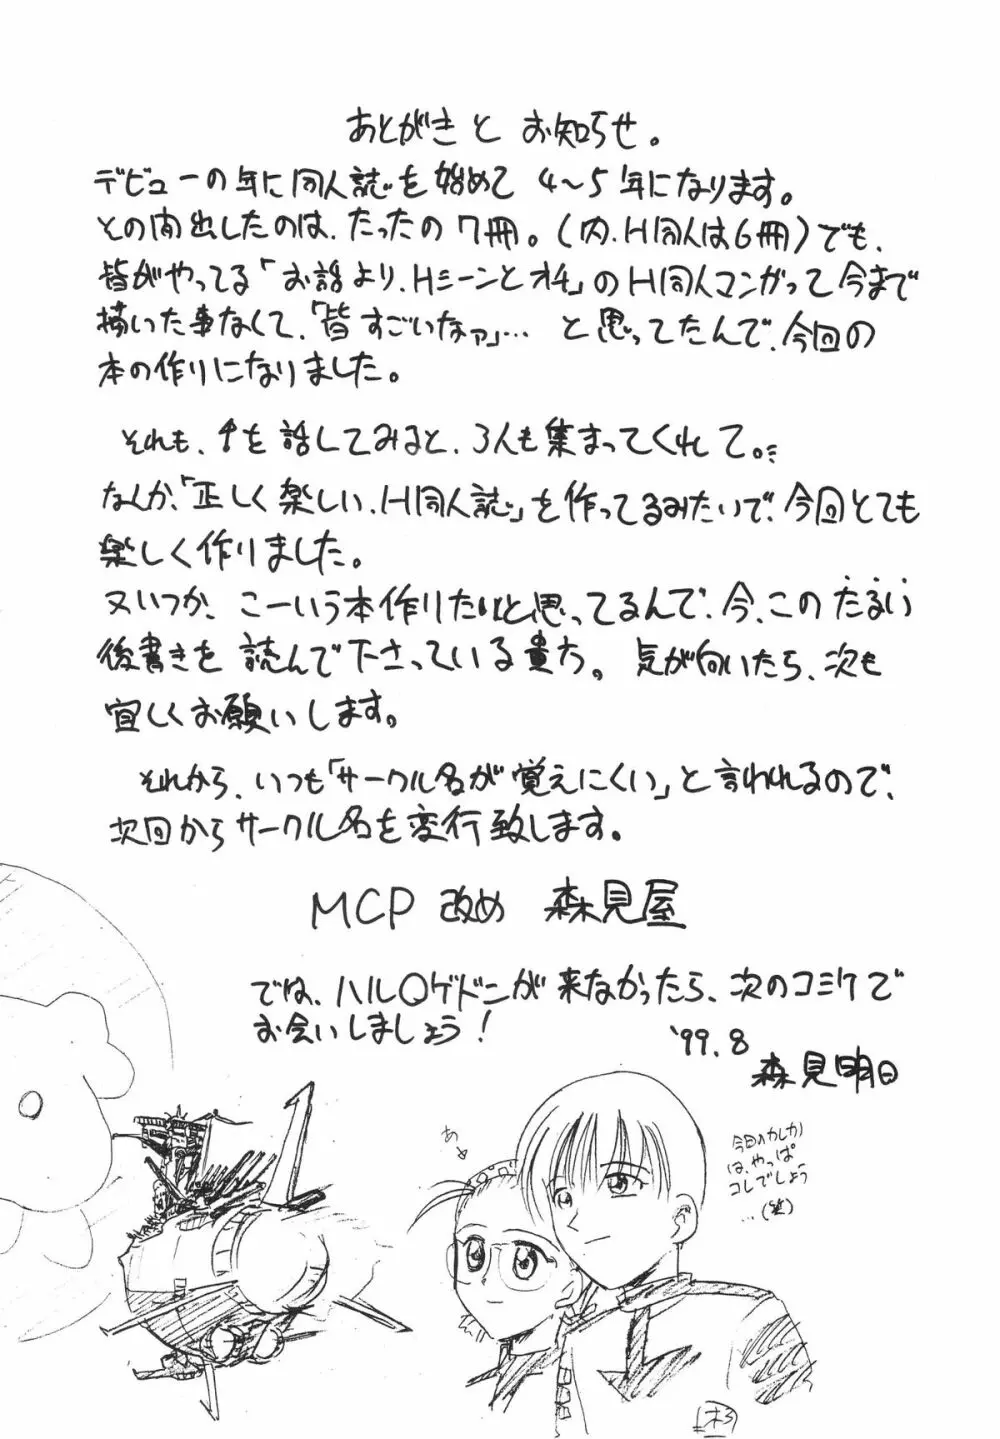 あとがきと お知らせ。
デビューの年に同人誌を始めて 4〜5年になります。
その間出したのは、たったの7冊。(内、H同人は6冊)でも、
皆がやってる「お話より、Hシーンとオチ」のH同人マンガって今まで
描いた事なくて、「皆すごいなァ」… と思ってたんで、今回の
本の作りになりました。
それも、を話してみると、3人も集まってくれて。
なんか、「正しく楽しい、H同人誌」を作ってるみたいで、今回とても
楽しく作りました。
又いつか、こーいう本作りたいと思ってるんで、今、このたるい
後書きを読んで下さっている貴方。気が向いたら、次も
宜しくお願いします。
それから、いつも「サークル名が覚えにくい」と言われるので、
次回からサークル名を変行致します。
MCP 改め 森見屋
では、ハル〇ゲドンが来なかったら、次のコミケで
お会いしましょう!
'99.8
森見明日
あ
今回のカレカノ
は、やっぱ
コレでしょう
…(笑)